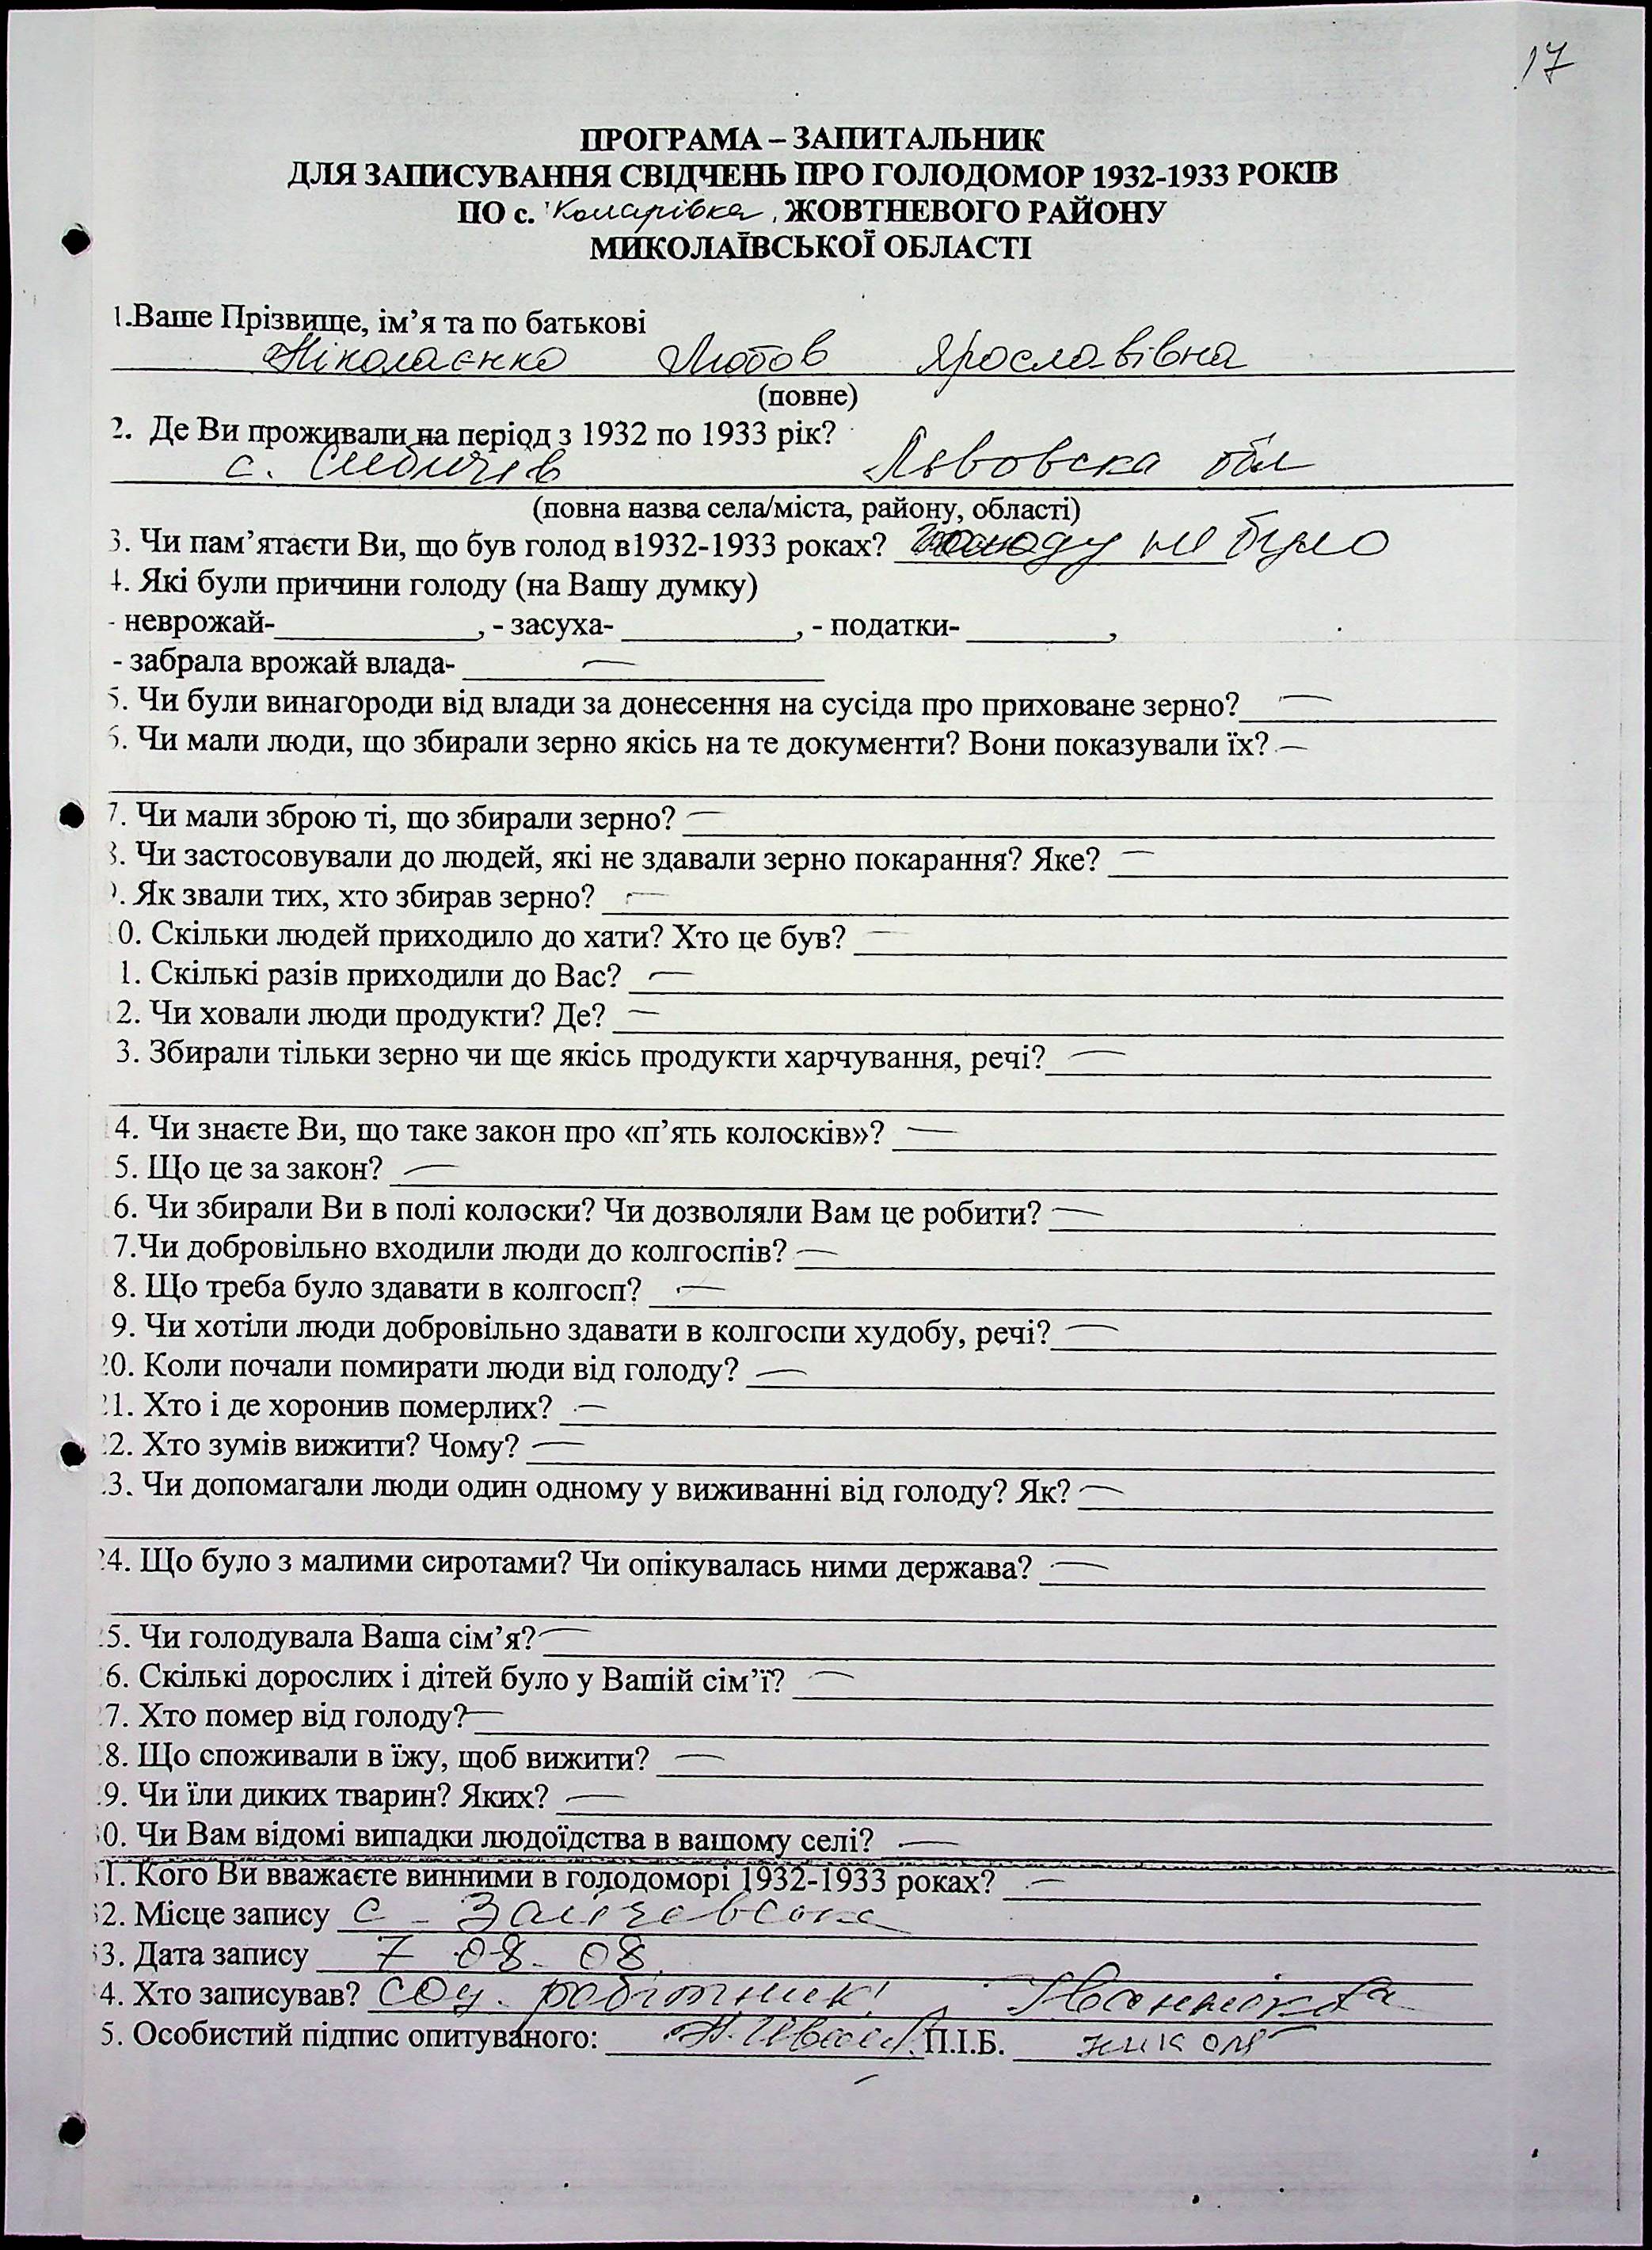 17
ПРОГРАМА – ЗАПИТАЛЬНИК
ДЛЯ ЗАПИСУВАННЯ СВІДЧЕНЬ ПРО ГОЛОДОМОР 1932-1933 РОКІВ
ПО с. Комарівка, ЖОВТНЕВОГО РАЙОНУ
МИКОЛАЇВСЬКОЇ ОБЛАСТІ
1.Ваше Прізвище, ім’я та по батькові
Ніколаєнко Любов Ярославівна
(повне)
2. Де Ви проживали на період з 1932 по 1933 рік?
с. Львовска обл
(повна назва села/міста, району, області)
3. Чи пам’ятаєти Ви, що був голод в1932-1933 роках? голоду не було
4. Які були причини голоду (на Вашу думку)
- неврожай-____________, - засуха- __________, - податки- ________,
- забрала врожай влада- —
5. Чи були винагороди від влади за донесення на сусіда про приховане зерно? —
6. Чи мали люди, що збирали зерно якісь на те документи? Вони показували їх? —
7. Чи мали зброю ті, що збирали зерно? —
8. Чи застосовували до людей, які не здавали зерно покарання? Яке? —
9. Як звали тих, хто збирав зерно? —
0. Скільки людей приходило до хати? Хто це був? —
1. Скількі разів приходили до Вас? —
2. Чи ховали люди продукти? Де? —
3. Збирали тільки зерно чи ще якісь продукти харчування, речі? —
4. Чи знаєте Ви, що таке закон про «п’ять колосків»? —
5. Що це за закон? —
6. Чи збирали Ви в полі колоски? Чи дозволяли Вам це робити? —
7.Чи добровільно входили люди до колгоспів? —
8. Що треба було здавати в колгосп? —
9. Чи хотіли люди добровільно здавати в колгоспи худобу, речі? —
20. Коли почали помирати люди від голоду? —
21. Хто і де хоронив померлих? —
22. Хто зумів вижити? Чому? —
23. Чи допомагали люди один одному у виживанні від голоду? Як? —
24. Що було з малими сиротами? Чи опікувалась ними держава? —
25. Чи голодувала Ваша сім’я? —
26. Скількі дорослих і дітей було у Вашій сім’ї? —
27. Хто помер від голоду? —
28. Що споживали в їжу, щоб вижити? —
29. Чи їли диких тварин? Яких? —
30. Чи Вам відомі випадки людоїдства в вашому селі? —
31. Кого Ви вважаєте винними в голодоморі 1932-1933 роках? —
32. Місце запису с-
33. Дата запису 7 08. 08.
34. Хто записував? соц. робітник
5. Особистий підпис опитуваного: П.І.Б.